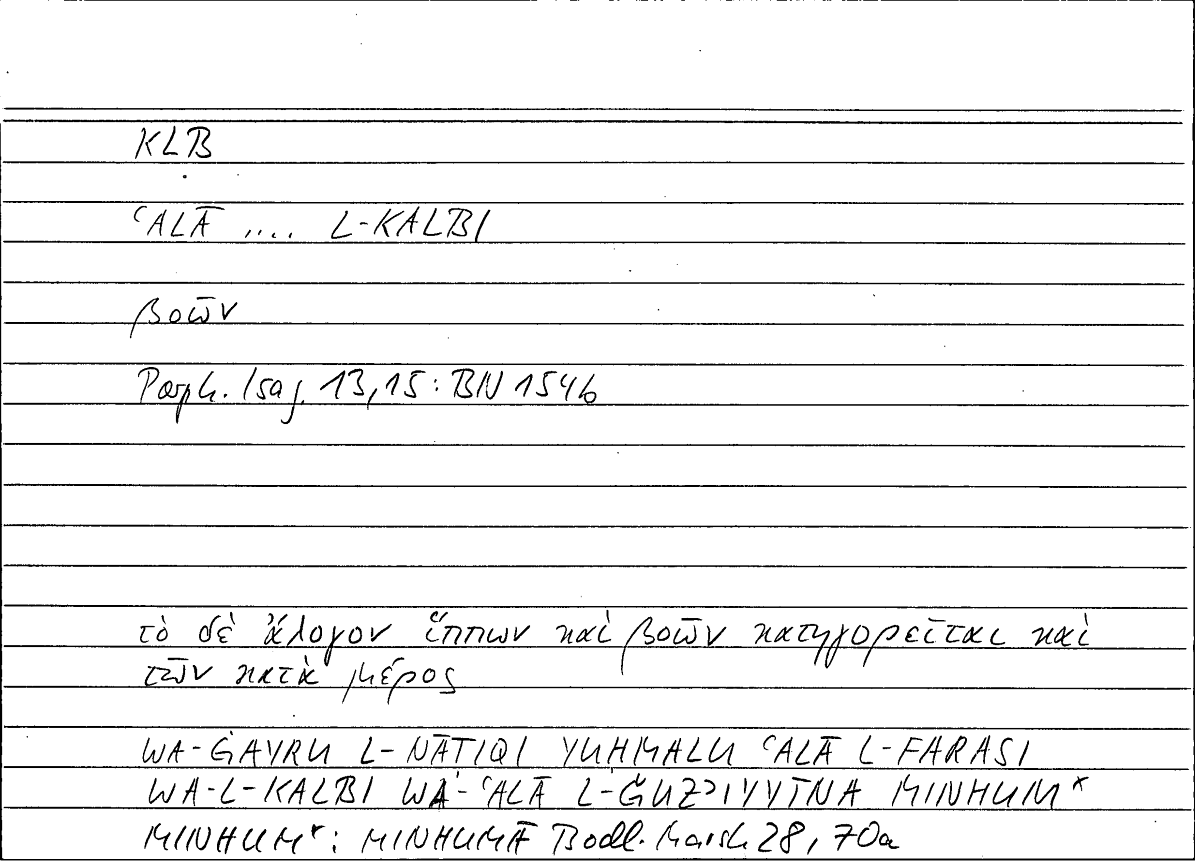 KLB
ʿALĀ .... L-KALBI
βοῶν
Porph. Isag. 13,15: BN 154b
τὸ δὲ ἄλογον ἵππων καὶ βοῶν κατηγορεῖται καὶ
τῶν κατὰ μέρος
WA-ĠAYRU L-NĀTIQI YUHMALU ʿALĀ L-FARASI
WA-L-KALBI WA-ʿALĀ L-ǦUZʾIYYĪNA MINHUM*
MINHUM*: MINHUMĀ Bodl. Marsh 28, 70a